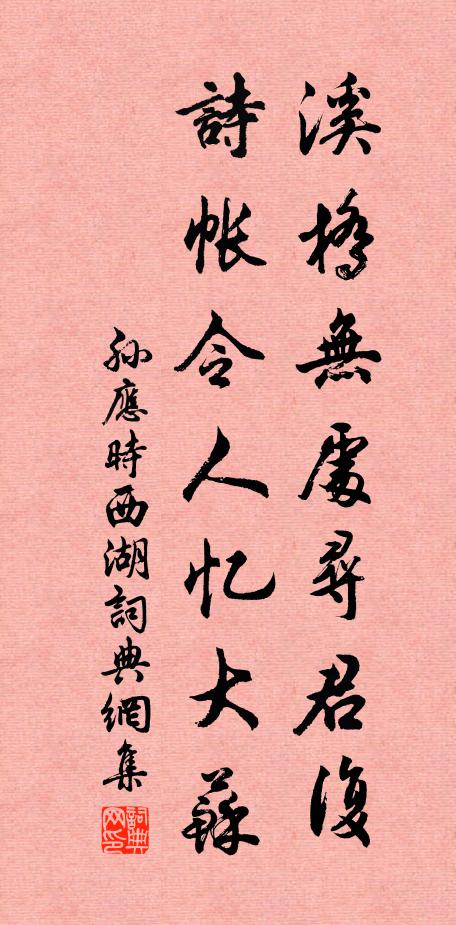 溪橋無處尋君復
詩帳令人忆大蘇
孙應時西湖詞典網集
詞典网印